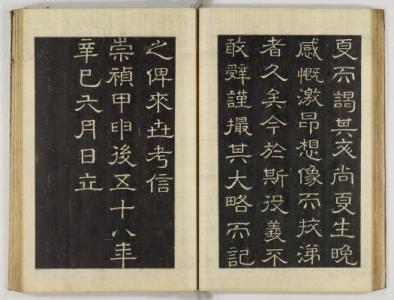 夏而謁其文尚夏生晚
感慨激昂想像而抆涕
者久矣今於斯役義不
敢辭謹撮其大略而記
之俾來世考信
崇禎甲申後五十八年
辛巳六月日立